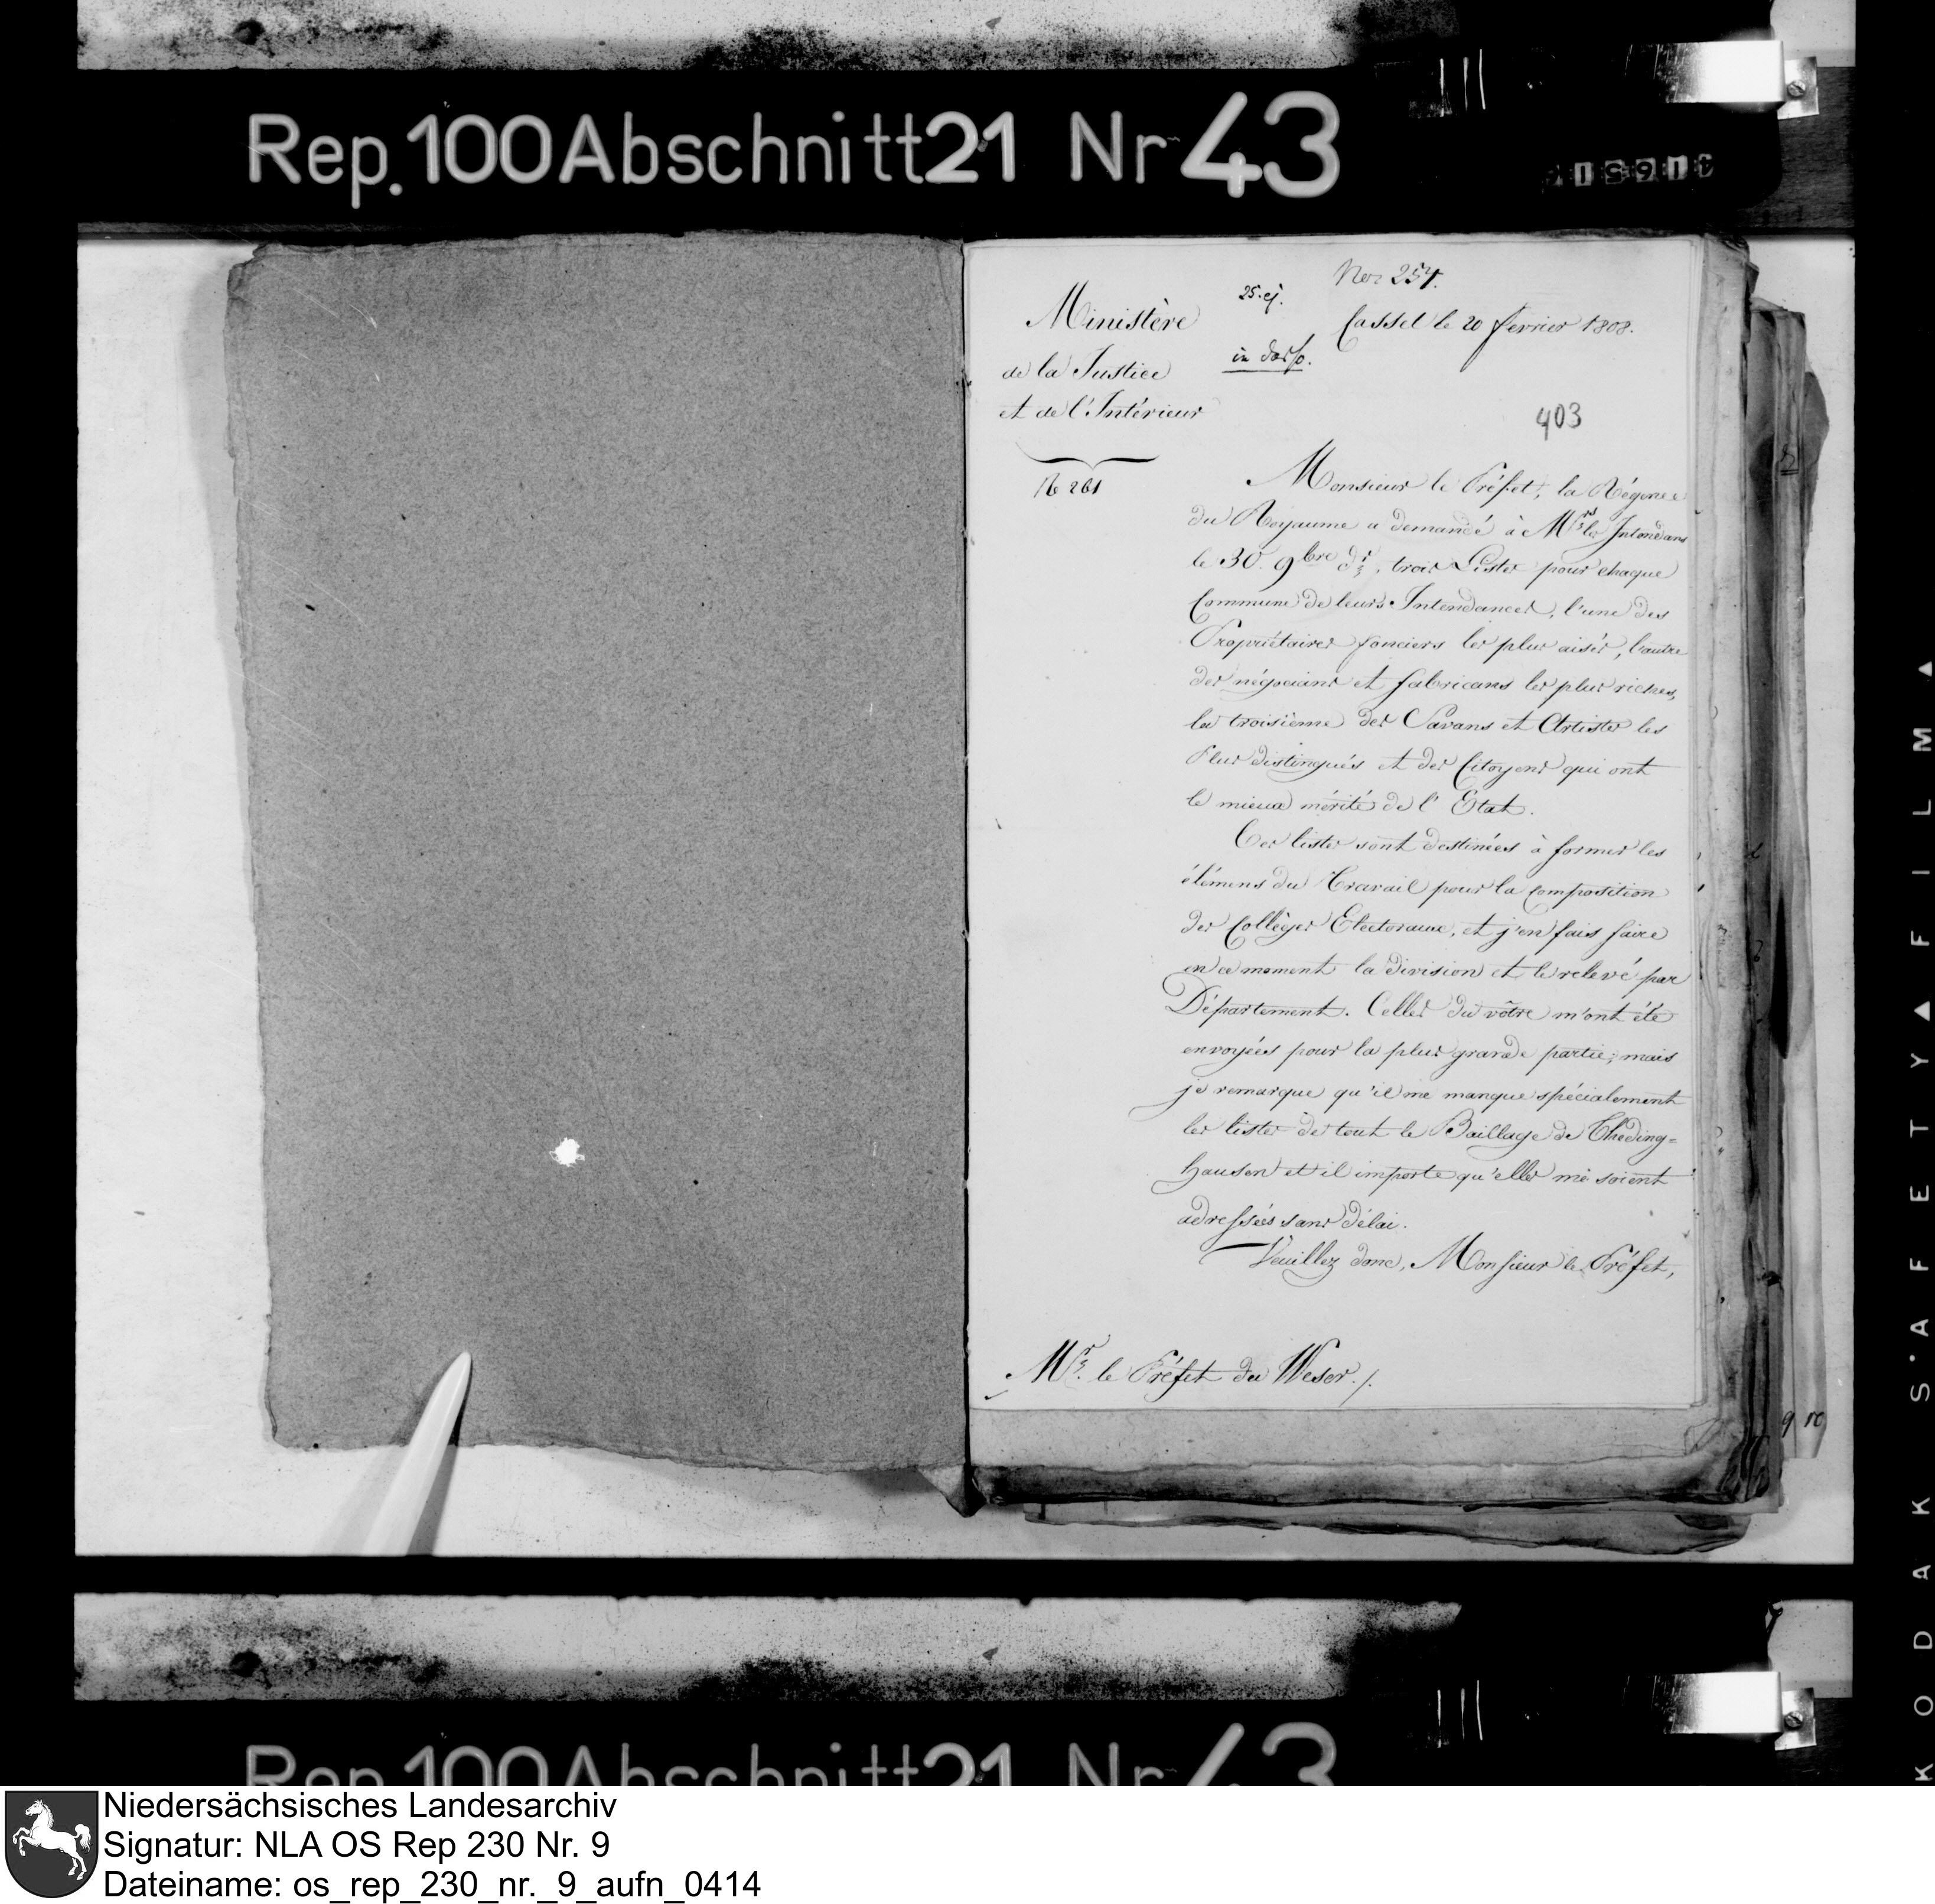 Rep. 100 Abschnitt 21 Nr 43
Nor 257.
25. ej.
Ministère
de la Justice
et de l'Intérieur
Cassel le 20 fevrier 1808.
in dorso.
403
N 261
Monsieur le Préfet, la Régence
du Royaume a demandé à Mrs les Intendans
le 30. 9bre dr, trois Listes pour chaque
Commune de leurs Intendances, l'une des
Propriétaires fonciers les plus aisés, l'autre
des négocians et fabricans les plus riches,
la troisième des Savans et Artistes les
Plus distingués et des Citoyens qui ont
le mieux mérité de l'Etat.
Ces listes sont destinées à former les
élémens du Travail pour la composition
des Collèges Electoraux, et j'en fais faire
en ce moment la division et le relevé par
Département. Celles du vôtre m'ont été
envoyées pour la plus grande partie; mais
je remarque qu'il me manque spécialement
les listes de tout le Baillage de Theding=
hausen et il importe qu'elles me soient
adressées sans délai.
Veuillez donc, Monsieur le Préfet,
Mr. le Préfet du Weser ./.
KODAK SAFETY FILM
Rep. 100 Abschnitt 21 Nr 43
Niedersächsisches Landesarchiv
Signatur: NLA OS Rep 230 Nr. 9
Dateiname: os_rep_230_nr._9_aufn_0414